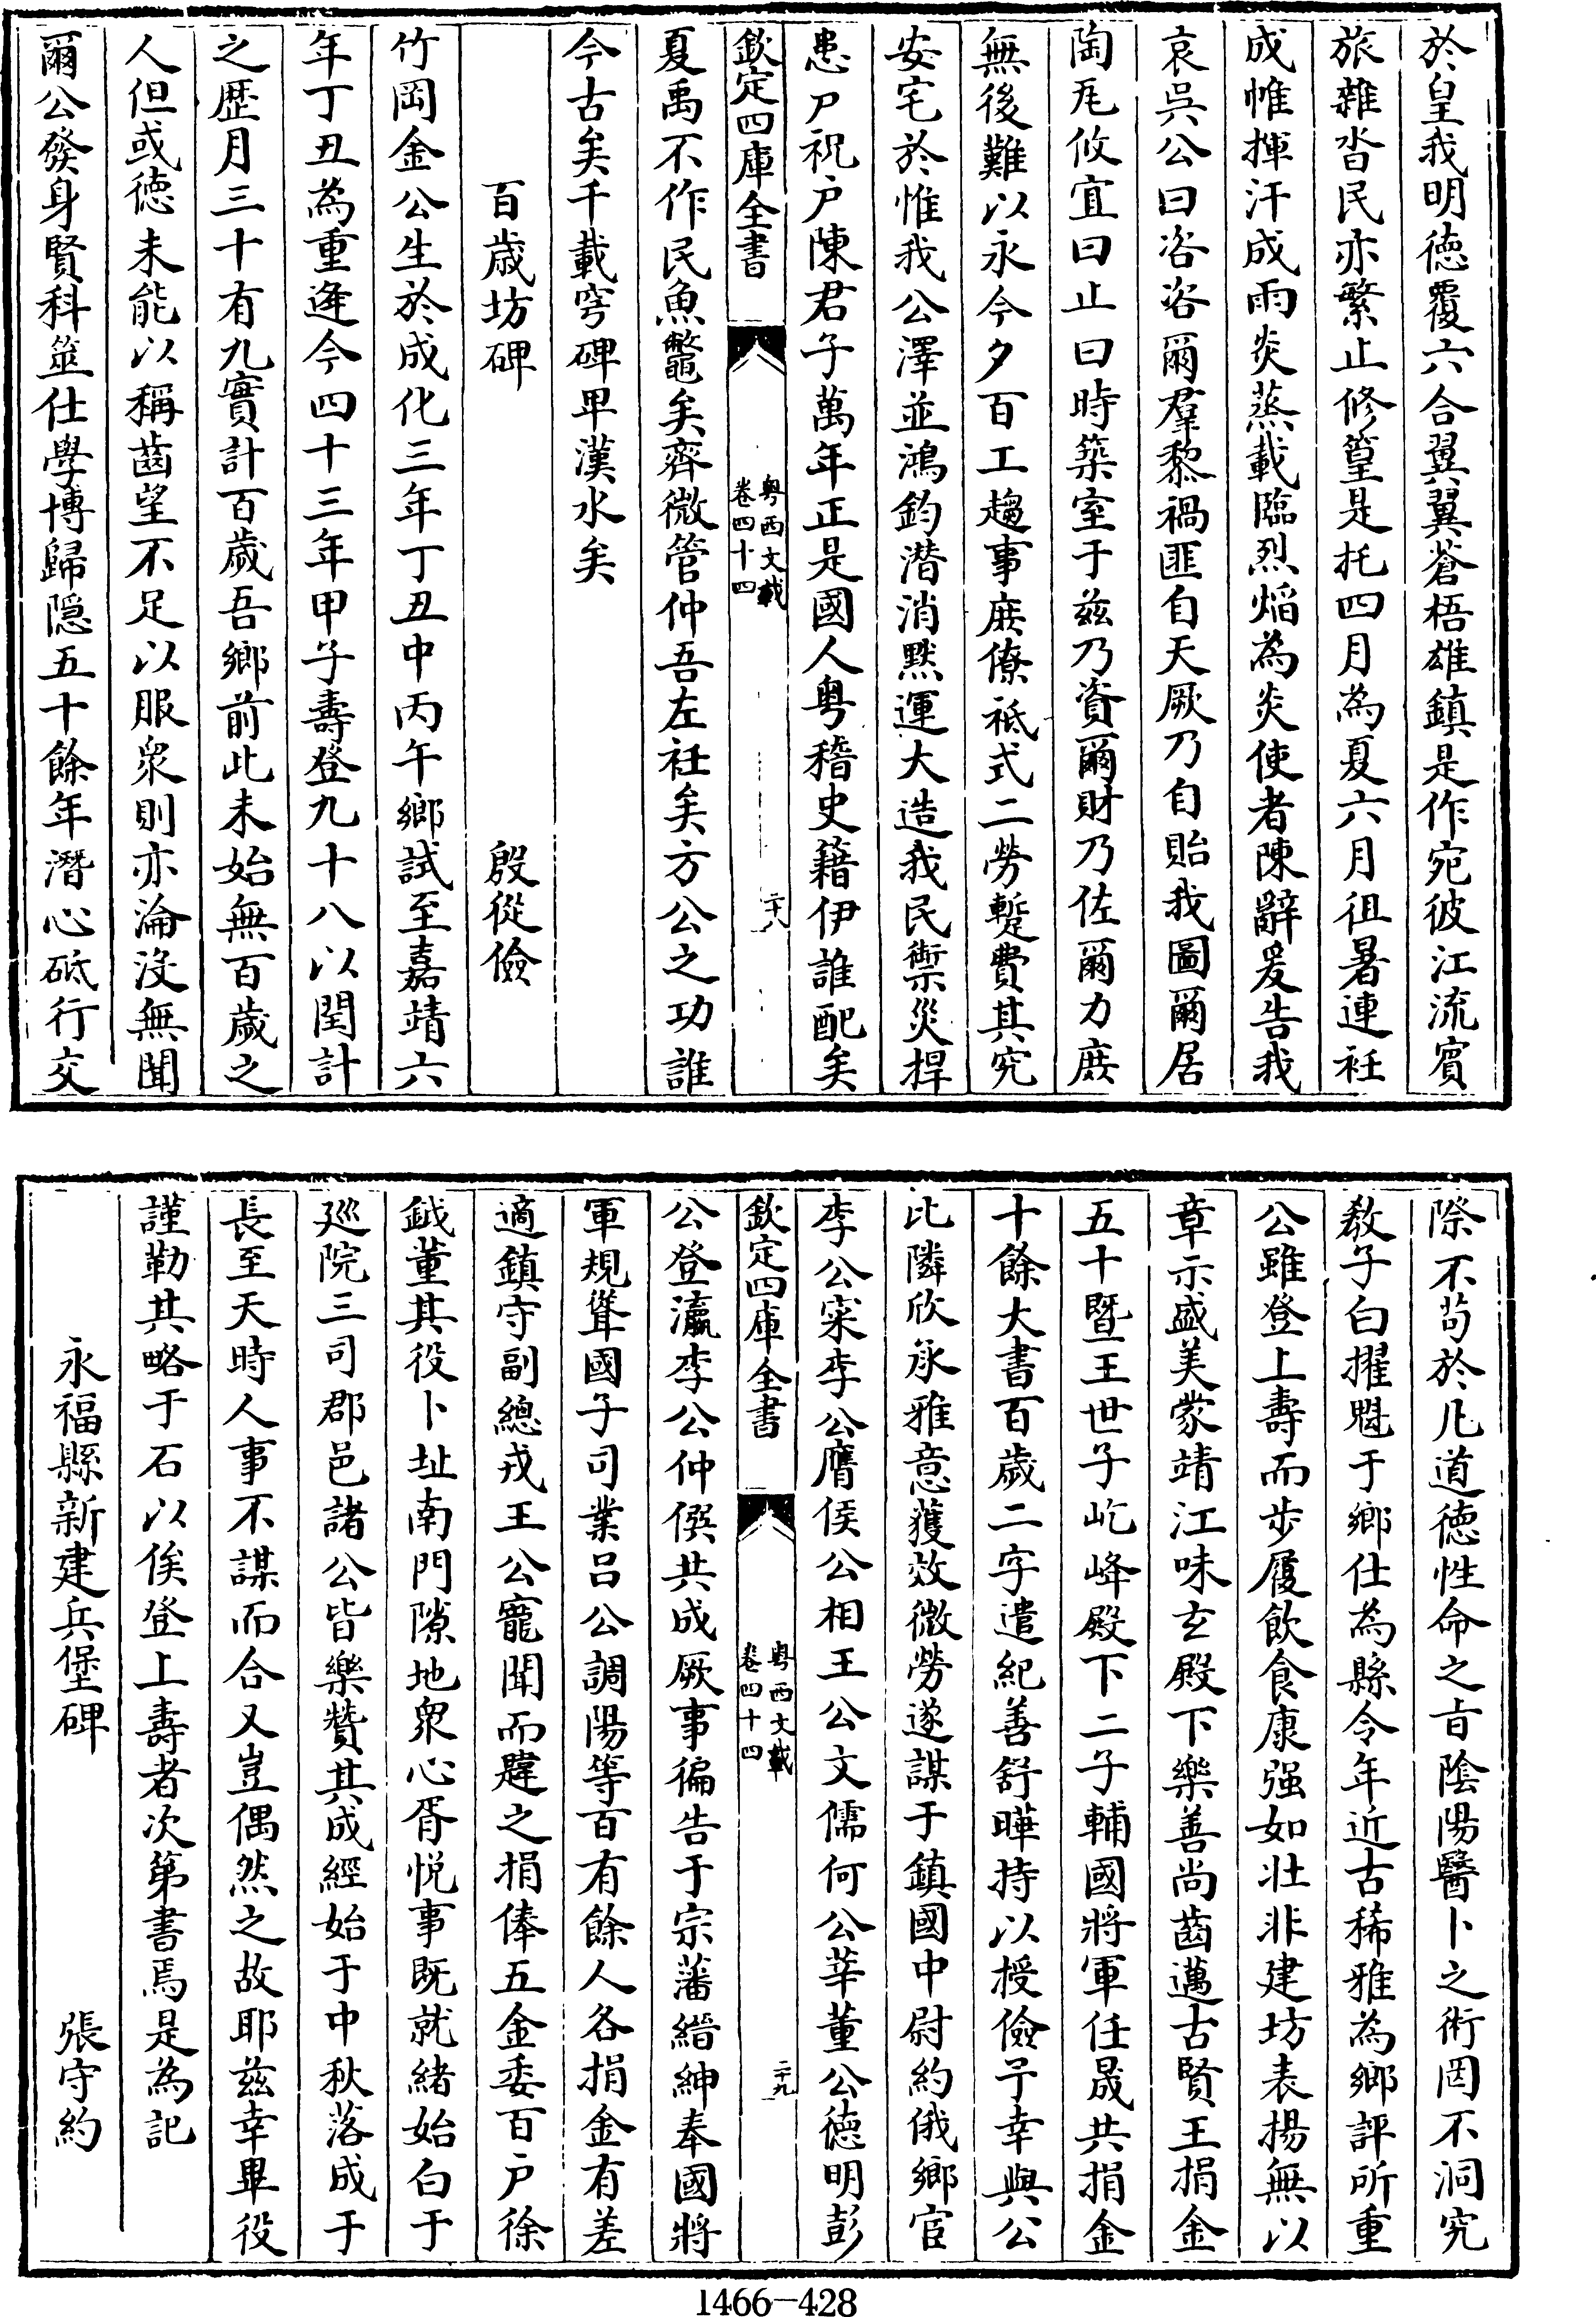 於皇我明德覆六合翼翼蒼梧雄鎮是作宛彼江流賓
旅雜沓民亦繁止修篁是托四月為夏六月徂暑連衽
成帷揮汗成雨炎蒸載臨烈焰為炎使者陳辭爰告我
哀吳公曰咨咨爾羣黎禍匪自天厥乃自貽我圖爾居
陶瓦攸宜曰止曰時築室于兹乃資爾財乃佐爾力庶
無後難以永今夕百工趨事庶僚祗式二勞蹔費其究
安宅於惟我公澤並鴻鈞潛消黙運大造我民禦災捍
患尸祝户陳君子萬年正是國人粤稽史籍伊誰配矣
欽定四庫全書
粤西文載
卷四十四
二十八
夏禹不作民魚鼈矣齊微管仲吾左衽矣方公之功誰
今古矣千載穹碑卑漢水矣
百歲坊碑
殷從儉
竹岡金公生於成化三年丁丑中丙午鄉試至嘉靖六
年丁丑為重逢今四十三年甲子壽登九十八以閏計
之歴月三十有九實計百歲吾鄉前此未始無百歲之
人但或德未能以稱齒望不足以服衆則亦淪沒無聞
爾公發身賢科筮仕學博歸隱五十餘年潛心砥行交
際不苟於凡道德性命之旨陰陽醫卜之術罔不洞究
教子白擢魁于鄉仕為縣令年近古稀雅為鄉評所重
公雖登上壽而步履飲食康强如壯非建坊表揚無以
章示盛美蒙靖江味玄殿下樂善尚齒邁古賢王捐金
五十暨王世子屹峰殿下二子輔國將軍任晟共捐金
十餘大書百歲二字遣紀善舒曄持以授儉予幸與公
比隣欣承雅意獲效微勞遂謀于鎮國中尉約俄鄉宦
李公寀李公膺侯公相王公文儒何公莘董公德明彭
欽定四庫全書
粤西文載
卷四十四
二十九
公登瀛李公仲僎共成厥事徧告于宗藩縉紳奉國將
軍規聳國子司業吕公調陽等百有餘人各捐金有差
適鎮守副總戎王公寵聞而韙之捐俸五金委百户徐
鉞董其役卜址南門隙地衆心胥悦事既就緒始白于
廵院三司郡邑諸公皆樂贊其成經始于中秋落成于
長至天時人事不謀而合又豈偶然之故耶兹幸畢役
謹勒其略于石以俟登上壽者次第書焉是為記
永福縣新建兵堡碑
張守約
1466-428